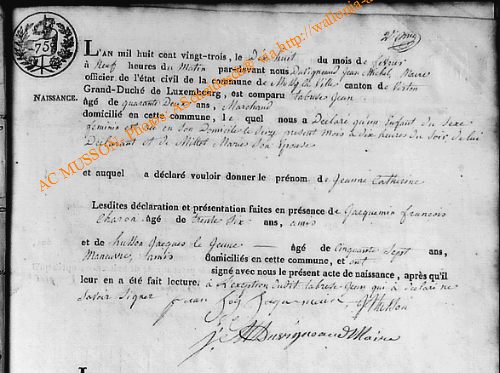 75
L'AN mil huit cent vingt-trois, le Dix huit du mois de février
à Neuf heures du Matin par-devant nous Jean Michel, Maire
officier de l'état civil de la commune de canton de Virton
Grand-Duché de Luxembourg, est comparu Labruse Jean
NAISSANCE.
âgé de quarante Deux ans, Marchand
domicilié en cette commune, lequel nous a Déclaré qu'un Enfant du Sexe
féminin est né en Son Domicile le Seize présent mois à Dix heures du Soir de lui
Déclarant et de Millot Marie Son Epouse
et auquel a déclaré vouloir donner le prénom de Jeanne Catherine
Lesdites déclaration et présentation faites en présence de Jacquemin François
âgé de trente Six ans, amis
et de husson Jacques le Jeune âgé de Cinquante Sept ans,
Manœuvre, domiciliés en cette commune, et ont
signé avec nous le présent acte de naissance, après qu'il
leur en a été fait lecture. à l'exception dudit Labruse Jean qui a déclaré ne
Savoir Signer
Maire
AC MUSSON Photos AC
via http://wallonia-